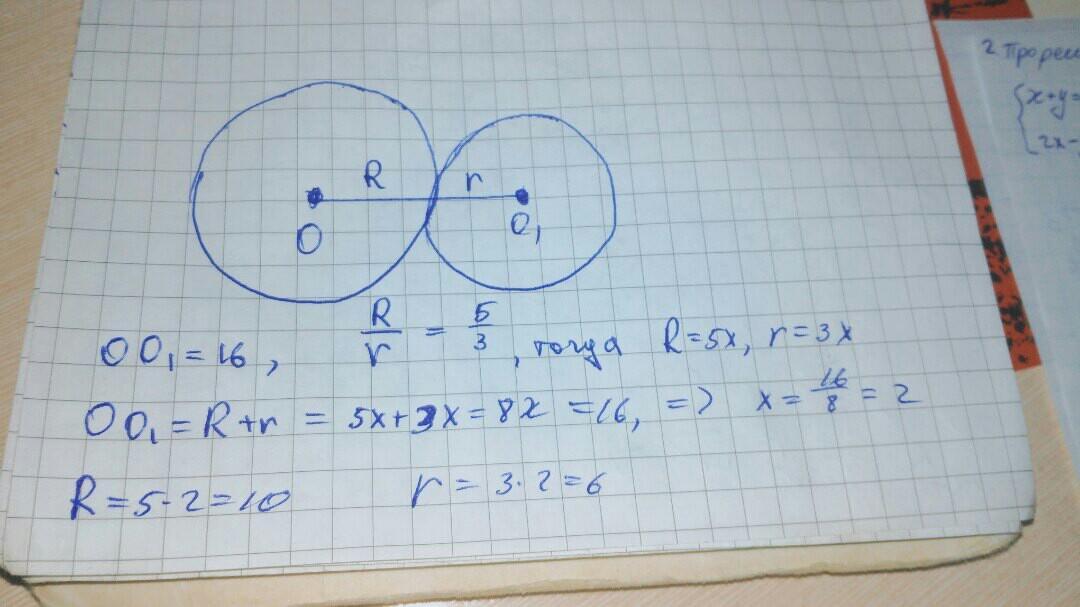 R r
O O₁
OO₁ = 16, R/r = 5/3, тогда R=5x, r=3x
OO₁ = R+r = 5x+3x=8x =16, => x= 16/8 = 2
R=5·2=10 r = 3·2=6
2 Прореш
{ x+y=
2x-